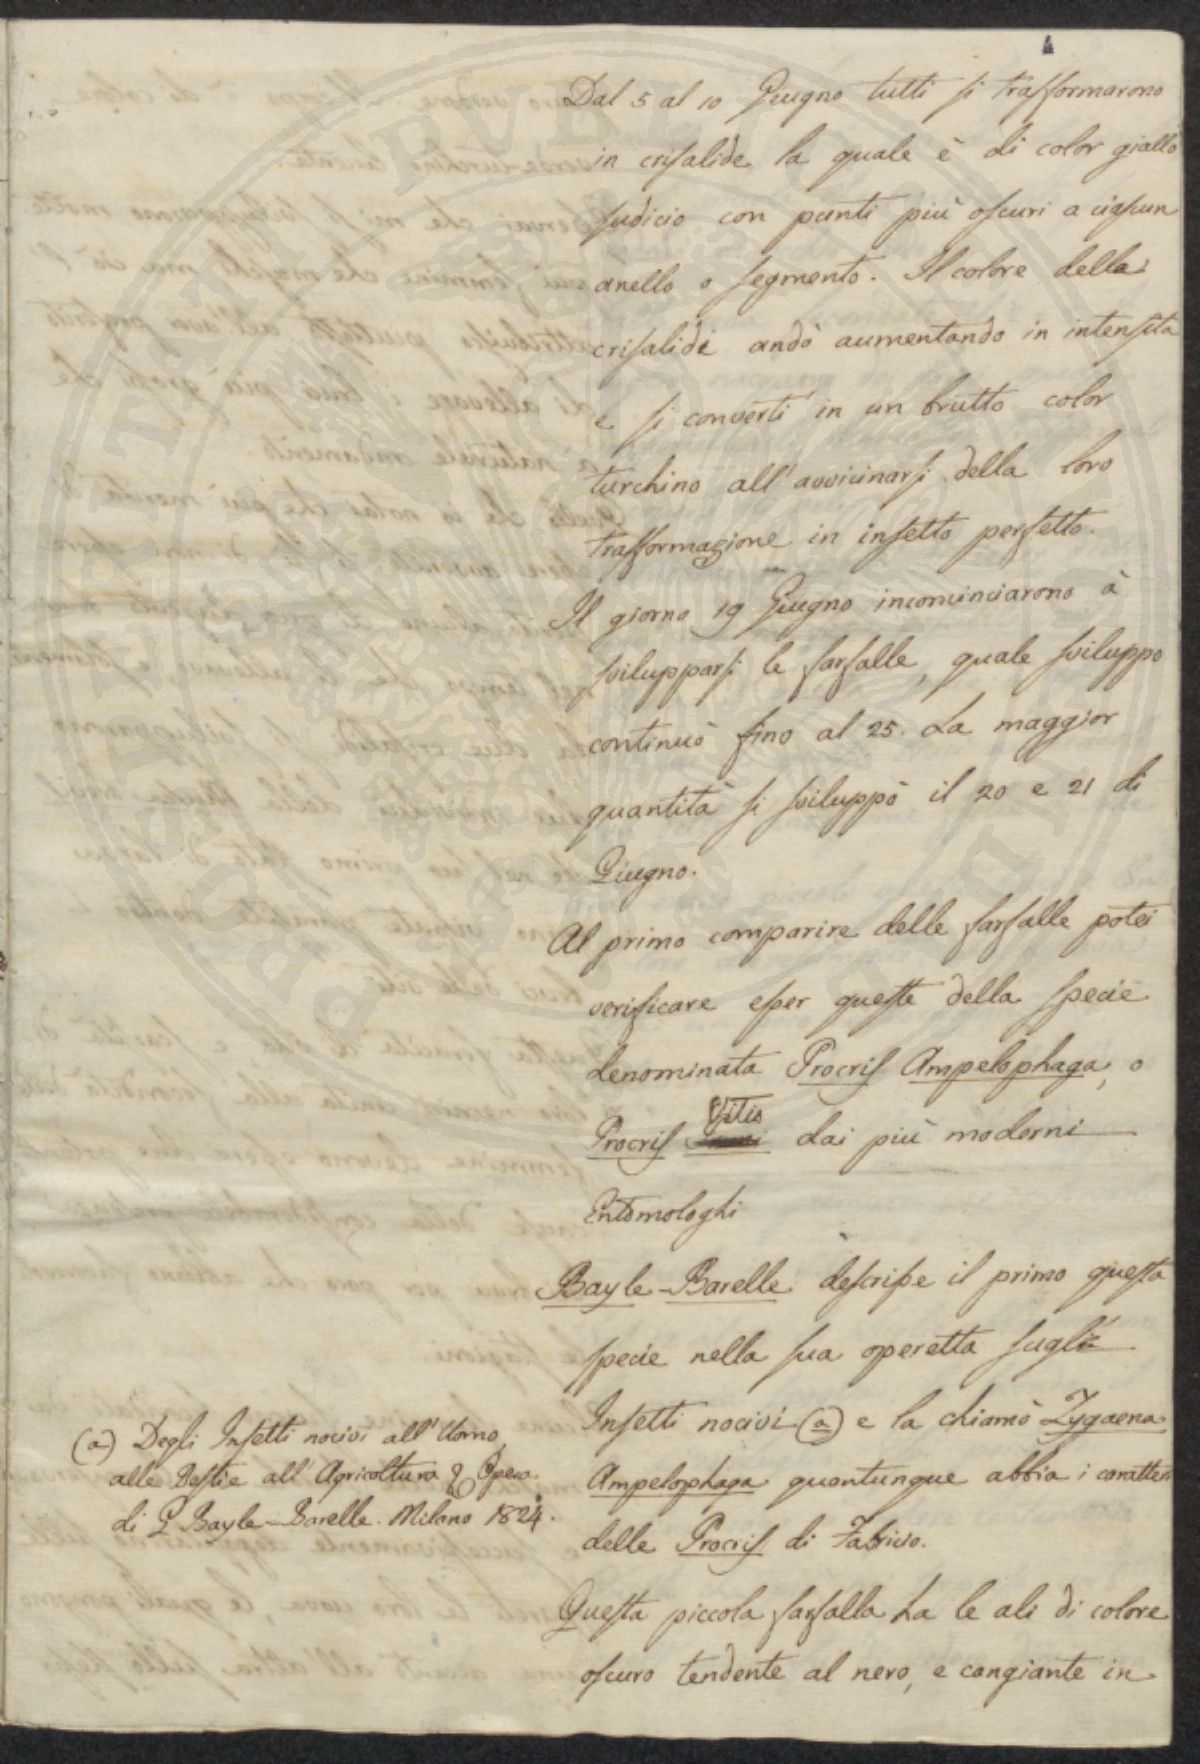 Dal 5 al 10 Giugno tutti si trasformarono
in crisalide la quale è di color giallo
sudicio con punti più oscuri a ciascun
anello o segmento. Il colore della
crisalide andò aumentando in intensità
e si convertì in un brutto color
turchino all'avvicinarsi della loro
trasformazione in insetto perfetto.
Il giorno 19 Giugno incominciarono à
svilupparsi le farfalle, quale sviluppo
continuò fino al 25. La maggior
quantità si sviluppò il 20 e 21 di
Giugno.
Al primo comparire delle farfalle potei
verificare esser queste della specie
denominata Procris Ampelophaga, o
Procris Vitis dai più moderni
Entomologhi
Bayle-Barelle descrisse il primo questa
specie nella sua operetta sugli
Insetti nocivi (a) e la chiamò Zygaena
Ampelophaga quantunque abbia i caratteri
delle Procris di Fabricio.
Questa piccola farfalla ha le ali di colore
oscuro tendente al nero, e cangiante in
(a) Degli Insetti nocivi all'Uomo,
alle Bestie all'Agricoltura & Opera
di G Bayle-Barelle. Milano 1824.